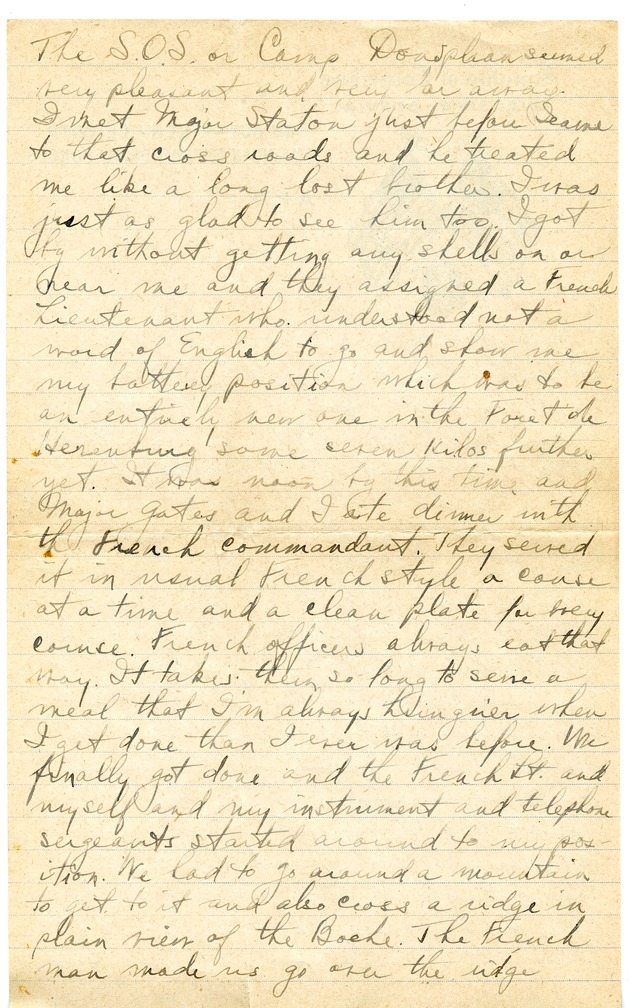 The S.O.S. or Camp Doniphan seemed
very pleasant and very far away.
I met Major Staton just before I came
to that cross roads and he treated
me like a long lost brother. I was
just as glad to see him too. I got
by without getting any shells on or
near me and they assigned a French
Lieutenant who understood not a
word of English to go and show me
my battery position which was to be
an entirely new one in the Foret de
Herenburg some seven kilos further
yet. It was noon by this time and
Major Gates and I ate dinner with
the French commandant. They served
it in usual French style a couse
at a time and a clean plate for every
course. French officers always eat that
way. It takes them so long to serve a
meal that I'm always hungrier when
I get done than I ever was before. We
finally got done and the French Lt. and
myself and my instrument and telephone
sergeants started around to my pos-
ition. We had to go around a mountain
to get to it and also cross a ridge in
plain view of the Boche. The French
man made us go over the ridge